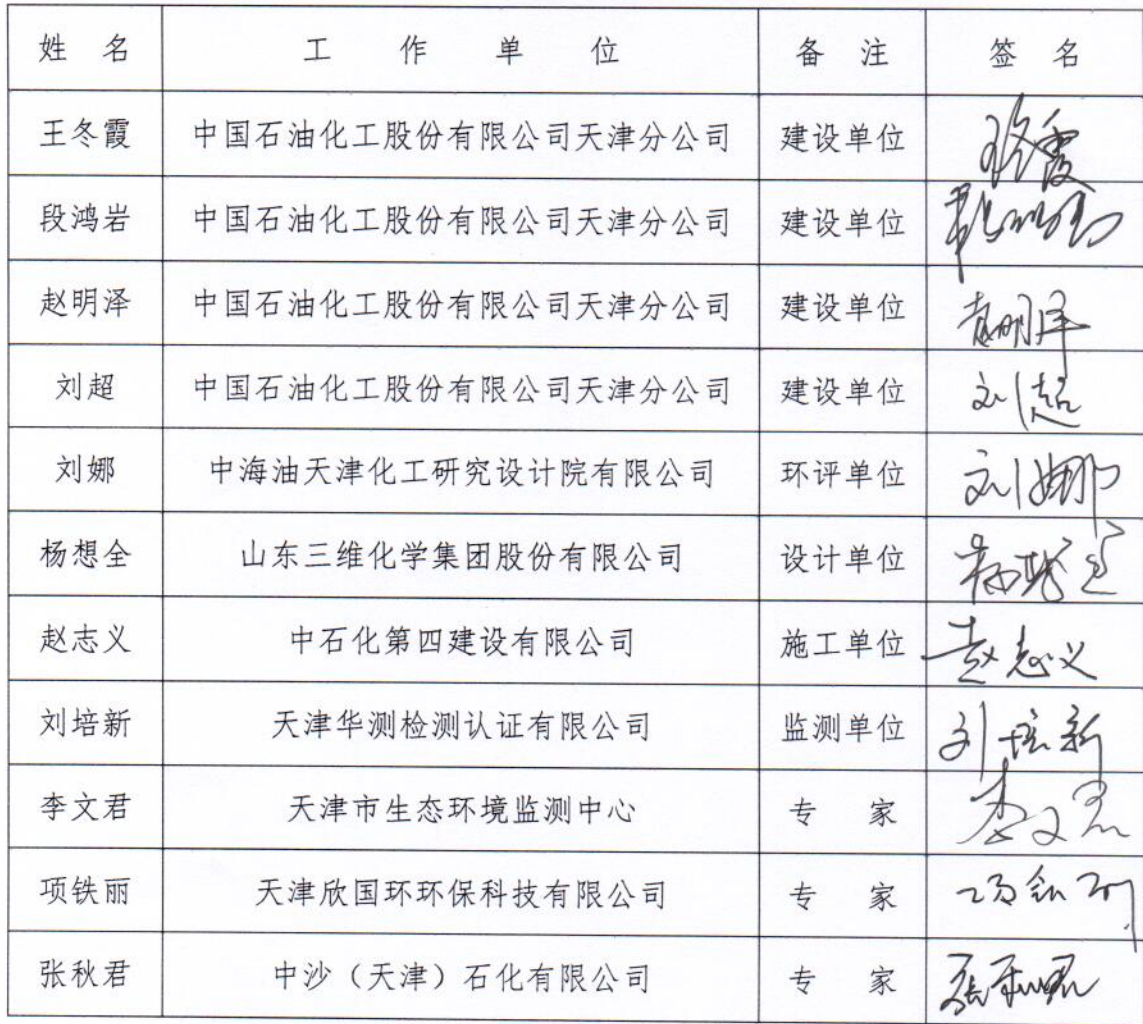 姓 名 工 作 单 位 备 注 签 名
王冬霞 中国石油化工股份有限公司天津分公司 建设单位 王冬霞
段鸿岩 中国石油化工股份有限公司天津分公司 建设单位
赵明泽 中国石油化工股份有限公司天津分公司 建设单位 赵明泽
刘超 中国石油化工股份有限公司天津分公司 建设单位 刘超
刘娜 中海油天津化工研究设计院有限公司 环评单位 刘娜
杨想全 山东三维化学集团股份有限公司 设计单位 杨想全
赵志义 中石化第四建设有限公司 施工单位 赵志义
刘培新 天津华测检测认证有限公司 监测单位 刘培新
李文君 天津市生态环境监测中心 专 家 李文君
项铁丽 天津欣国环环保科技有限公司 专 家 项铁丽
张秋君 中沙（天津）石化有限公司 专 家 张秋君